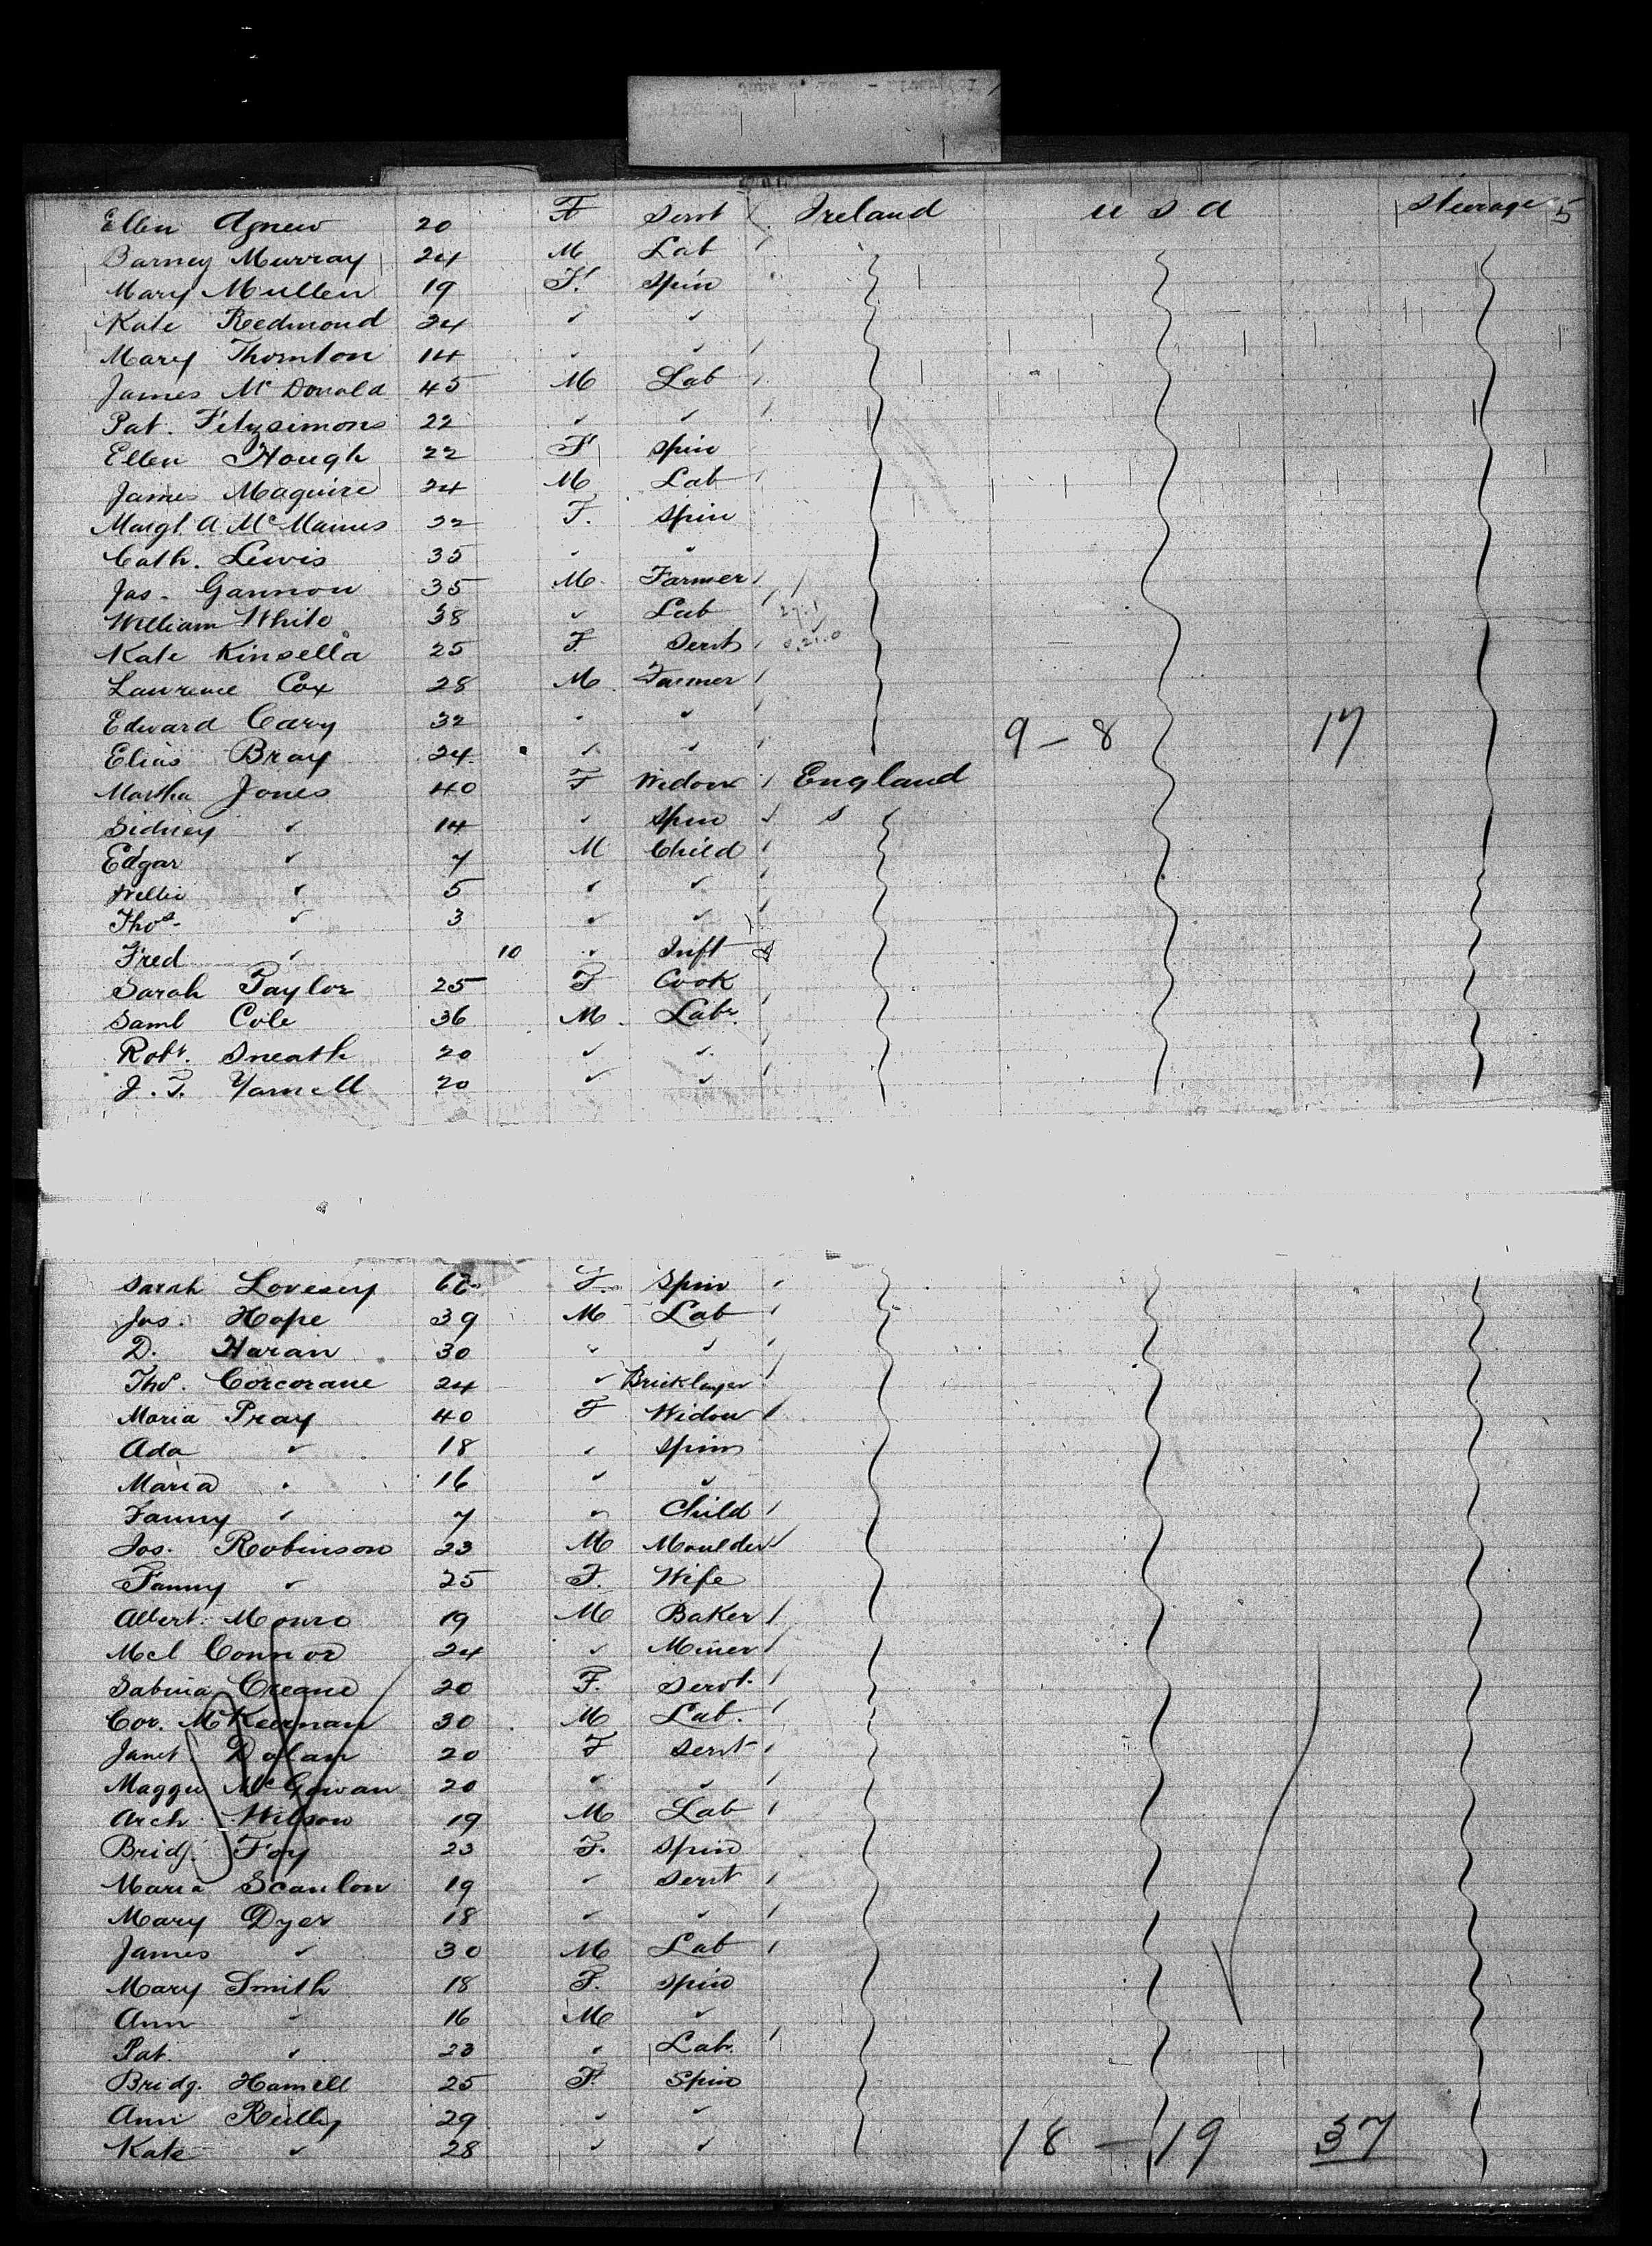 Ellen Agnew 20 F Servt Ireland U S A Steerage 5
Barney Murray 24 M Lab
Mary Mullen 19 F. Spin
Kate Redmond 24 " "
Mary Thornton 14 " "
James McDonald 45 M Lab
Pat. Fitzsimons 22 " "
Ellen Hough 22 F Spin
James Maguire 24 M Lab
Margt A McManus 22 F. Spin
Cath. Lewis 35 " "
Jas. Gannon 35 M. Farmer
William White 38 " Lab
Kate Kinsella 25 F. Servt
Laurence Cox 28 M. Farmer
Edward Carey 32 " " 9 – 8 17
Elias Bray 24 " "
Martha Jones 40 F Widow England
Sidney " 14 " Spin
Edgar " 7 M Child
Willie " 5 " "
Thos. " 3 " "
Fred " 10 " Inft
Sarah Taylor 25 F Cook
Saml Cole 36 M. Labr.
Robt. Sneath 20 " "
J. T. Yarnell 20 " "
Sarah Lovesey F. Spin
Jos. Hope 39 M Lab
D. Haran 30 " "
Thos. Corcorane 24 " Bricklayer
Maria Pray 40 F Widow
Ada " 18 " Spin
Maria " 16 " "
Fanny " 7 " Child
Jos. Robinson 23 M Moulder
Fanny " 25 F. Wife
Albert Monro 19 M Baker
Mcl Connor 24 " Miner
Sabina Creane 20 F. Servt.
Cor. McKeernan 30 M Lab.
Janet Dolan 20 F Servt
Maggie McGowan 20 " "
Arch. Wilson 19 M Lab
Bridg. Foy 23 F. Spin
Maria Scanlon 19 " Servt
Mary Dyer 18 " "
James " 30 M Lab
Mary Smith 18 F. Spin
Ann " 16 M "
Pat. " 23 " Lab.
Bridg. Hamell 25 F. Spin
Ann Reilly 29 " "
Kate " 28 " " 18 – 19 37